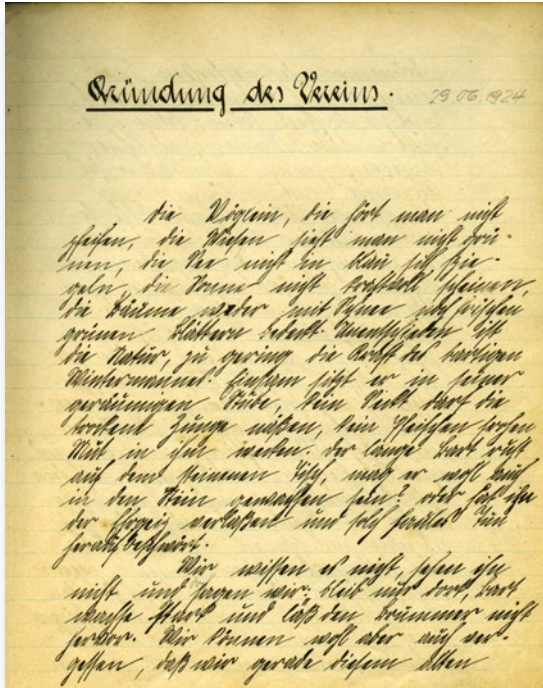 Gründung des Vereins.
29.06.1924
Die Vöglein, die hört man nicht
pfeifen, die Wiesen sieht man nicht grü-
nen, die See nicht in blau sich spie-
geln, die Sonne nicht kraftvoll scheinen,
die Bäume weder mit Schnee noch frischen
grünen Blättern bedeckt. Unentschieden ist
die Natur, zu gering die Kraft des bärtigen
Wintermannes. Einsam sitzt er in seiner
geräumigen Stube, kein Sekt darf die
trockene Zunge näßen, kein Pfeifchen frohen
Mut in ihm wecken. Der lange Bart ruht
auf dem steinenen Tisch, mag er wohl auch
in den Stein gewachsen sein? oder hat ihn
der Ehrgeiz verlaßen und solch faules Tun
herauf beschwört.
Wir wissen es nicht, sehen ihn
nicht und sagen wir: bleib nur dort, Bart
wachse stark und laß den Brummer nicht
hervor. Wir können wohl aber auch ver-
gessen, daß wir gerade diesem alten